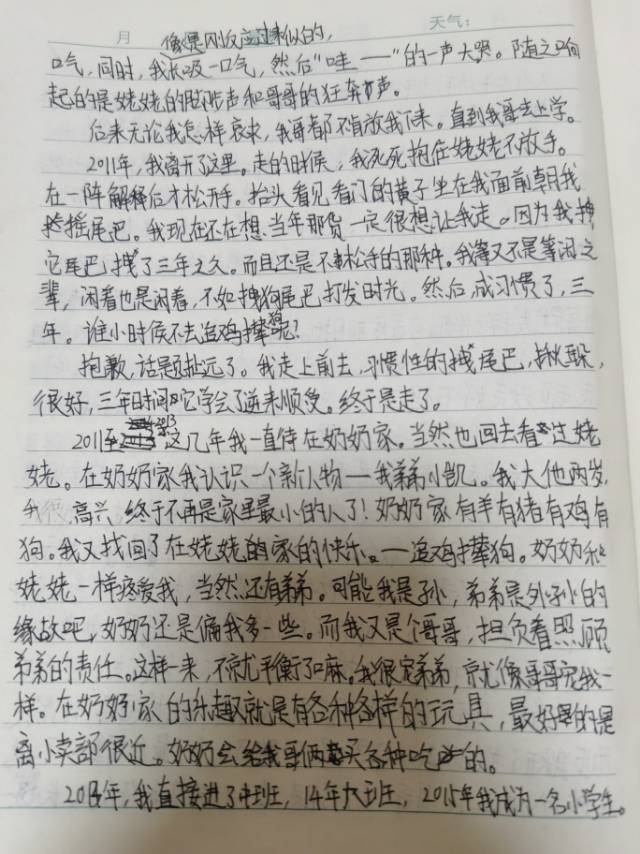 月 天气:
像是刚反应过来似的,
口气,同时,我长吸一口气,然后“哇——”的一声大哭。随之响
起的是姥姥的脚步声和哥哥的狂奔声。
后来无论我怎样哀求,我哥都不肯放我下来。直到我哥去上学。
2011年,我离开了这里。走的时候,我死死抱住姥姥不放手。
在一阵解释后才松开手。抬头看见看门的黄子坐在我面前朝我
摇尾巴。我现在还在想,当年那货一定很想让我走。因为我拽
它尾巴拽了三年之久。而且还是不松手的那种。我等又不是等闲之
辈,闲着也是闲着,不如拽狗尾巴打发时光。然后,成习惯了,三
年。谁小时候不去追鸡撵狗呢?
抱歉,话题扯远了。我走上前去,习惯性的拽尾巴,揪耳朵,
很好,三年时间它学会了逆来顺受。终于是走了。
2011至2013这几年我一直待在奶奶家。当然也回去看过姥
姥。在奶奶家我认识一个新人物——我弟弟小凯。我大他两岁,
我很高兴,终于不再是家里最小的人了!奶奶家有羊有猪有鸡有
狗。我又找回了在姥姥的家的快乐。——追鸡撵狗。奶奶和
姥姥一样疼爱我,当然还有弟弟。可能我是孙,弟弟是外孙的
缘故吧,奶奶还是偏我多一些。而我又是个哥哥,担负着照顾
弟弟的责任。这样一来,不就平衡了嘛。我很宠弟弟,就像哥哥宠我一
样。在奶奶家的乐趣就是有各种各样的玩具,最好的是
离小卖部很近。奶奶会给我哥俩买各种吃的。
2013年,我直接进了中班,14年大班,2015年我成为一名小学生。